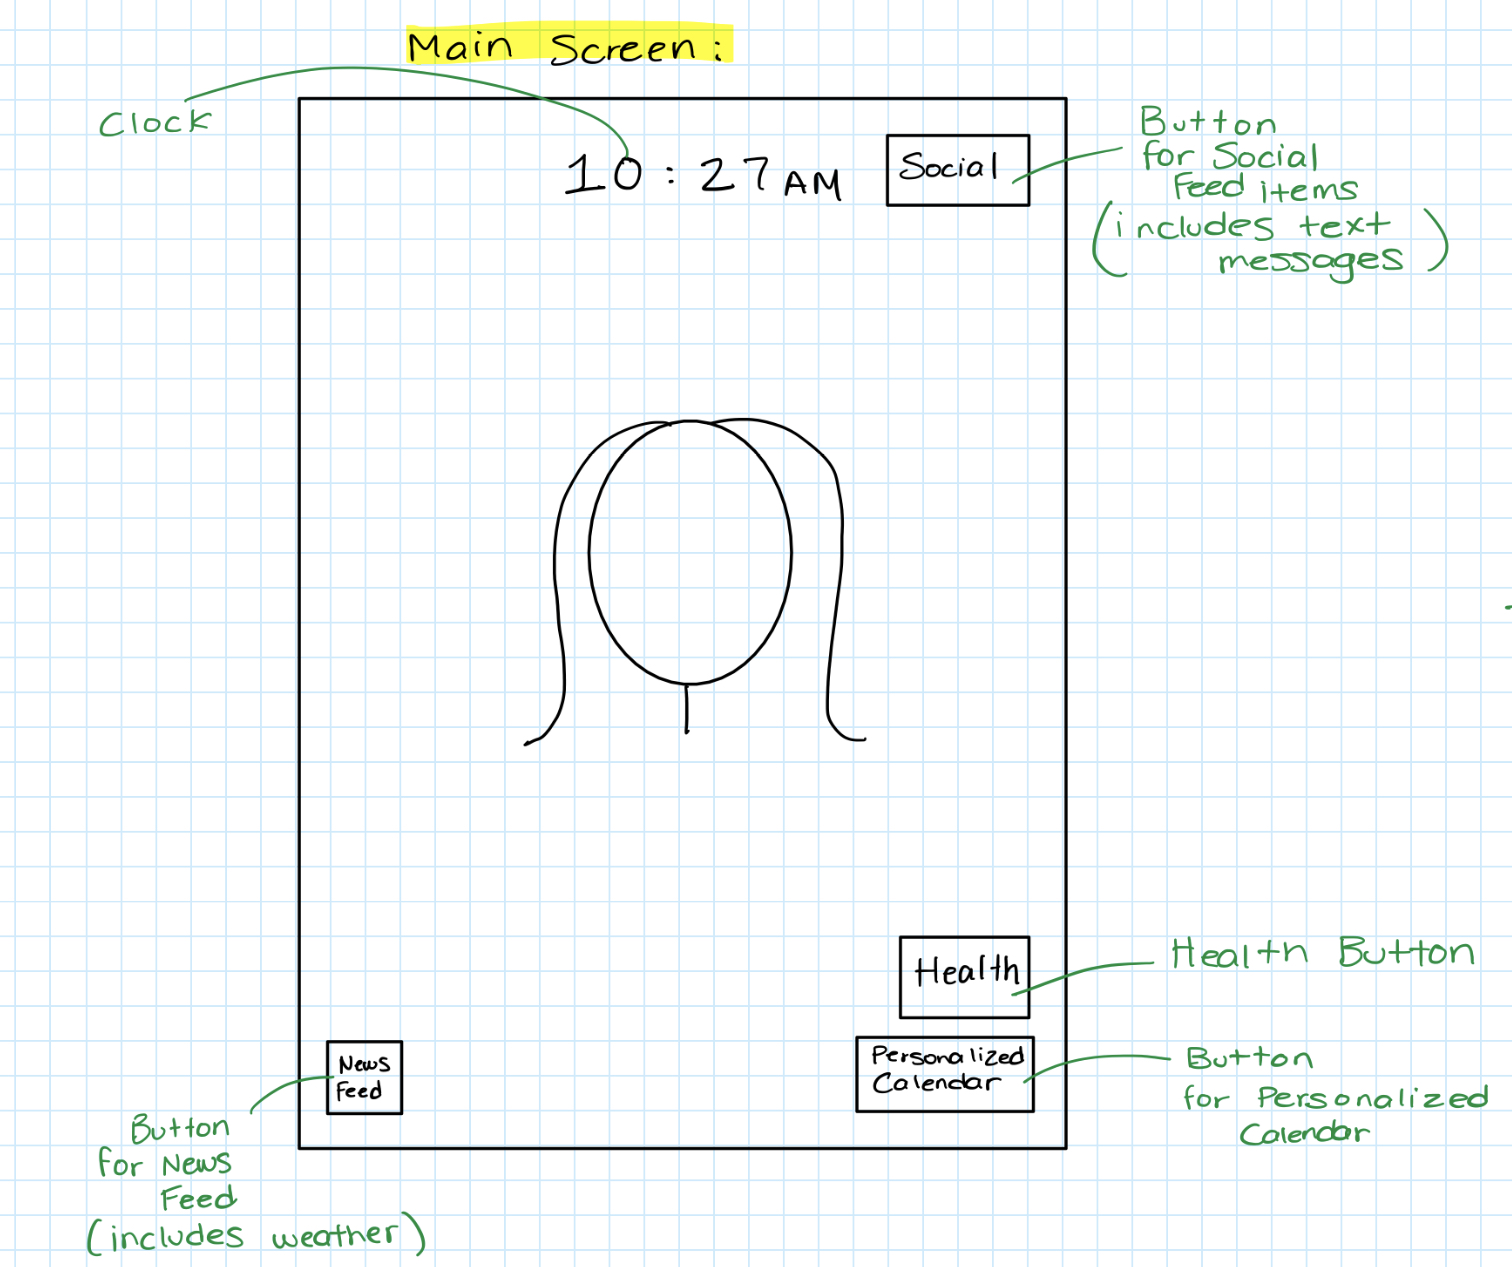 Main Screen:
Clock
10:27 AM
Social
Button
for Social
Feed items
(includes text
messages)
Health
Health Button
News
Feed
Personalized
Calendar
Button
for Personalized
Calendar
Button
for News
Feed
(includes weather)